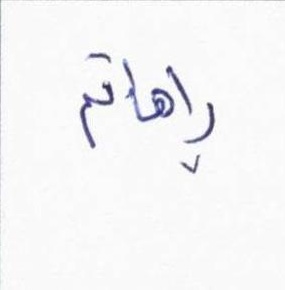 ڕاهاتم